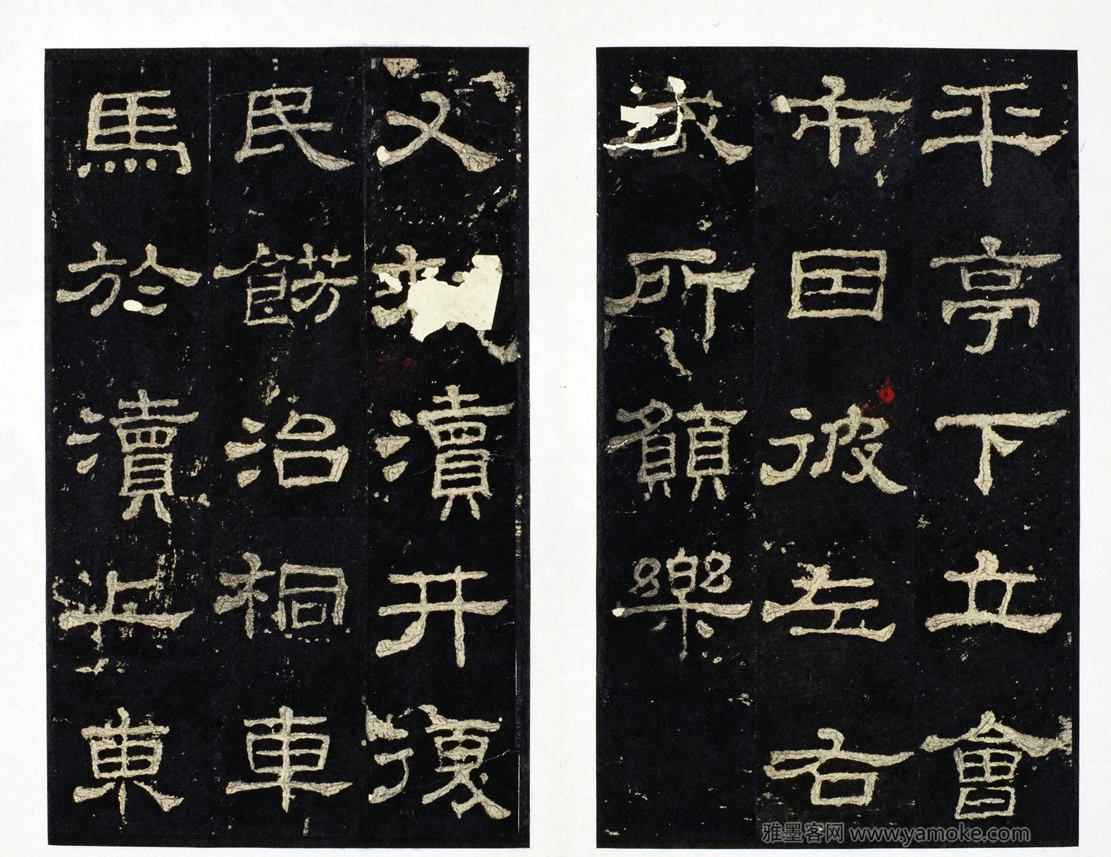 平亭下立會
市因彼左右
咸所願樂
又瀆井復
民餝治桐車
馬於瀆上東
雅墨客网 www.yamoke.com